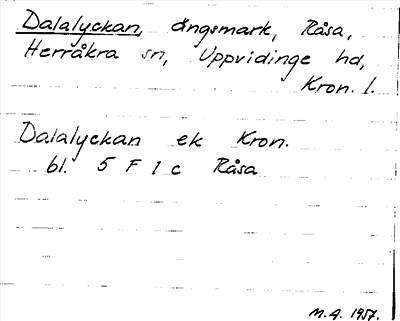 Dalalyckan, ängsmark, Råsa,
Herråkra sn, Uppvidinge hd,
Kron. l.
Dalalyckan ek Kron.
bl. 5 F 1 c Råsa
M.A. 1957.